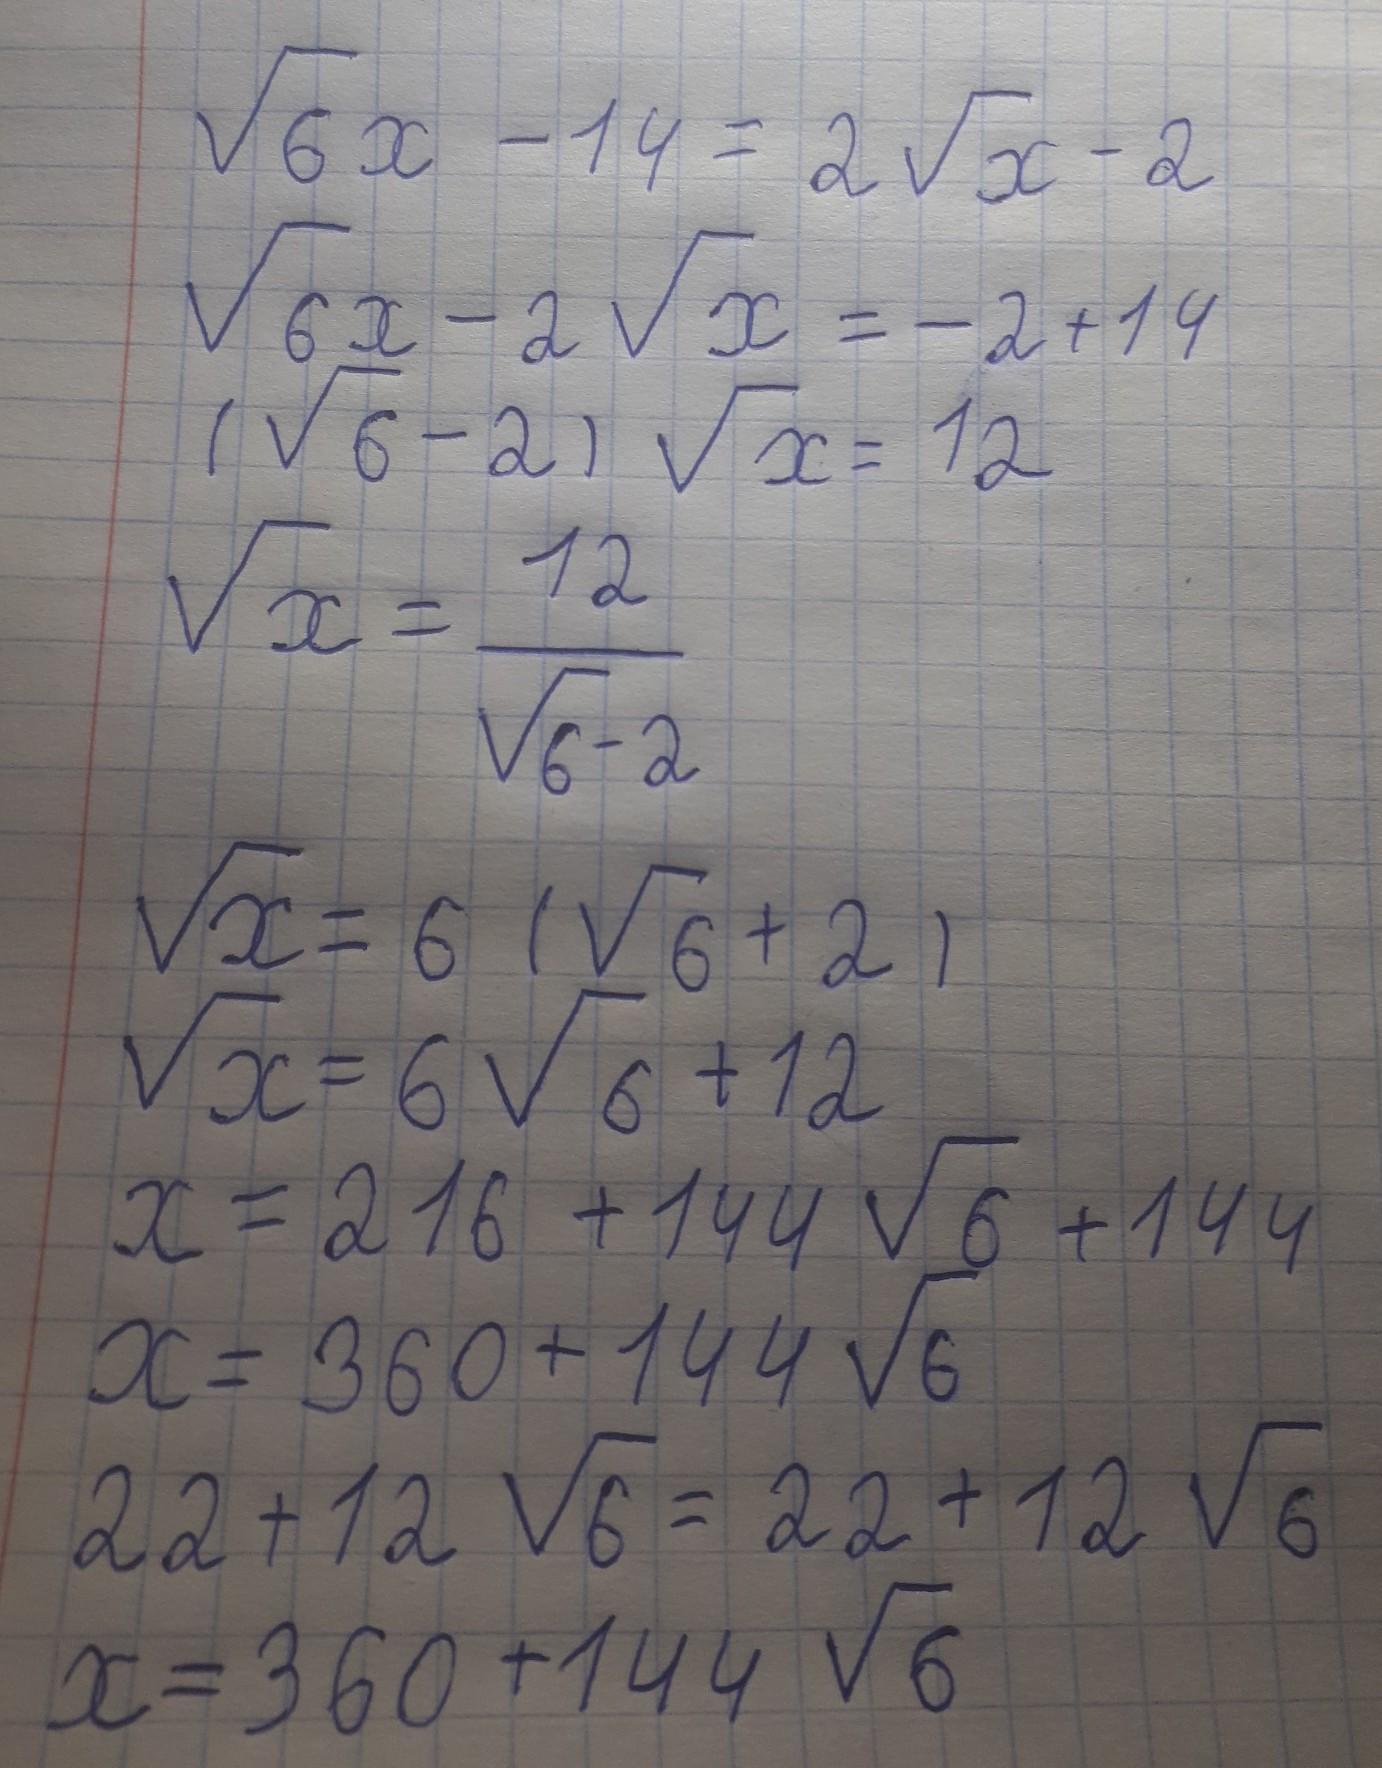 √6x - 14 = 2√x - 2
√6x - 2√x = -2 + 14
(√6 - 2) √x = 12
√x = 12/(√6 - 2)
√x = 6 (√6 + 2)
√x = 6√6 + 12
x = 216 + 144√6 + 144
x = 360 + 144√6
22 + 12√6 = 22 + 12√6
x = 360 + 144√6